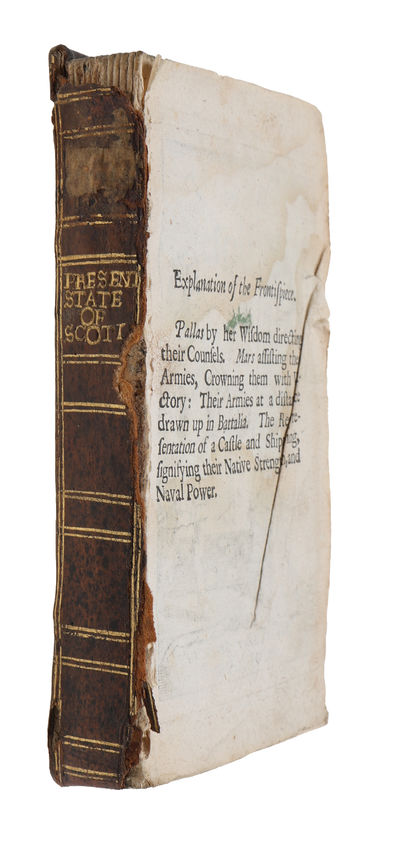 PRESENT
STATE
OF
SCOTL
Explanation of the Frontispiece.
Pallas by her Wisdom directing
their Counsels. Mars assisting the
Armies, Crowning them with
ctory: Their Armies at a distance
drawn up in Battalia. The
sentation of a Castle and Shipping,
signifying their Native Strength, and
Naval Power.